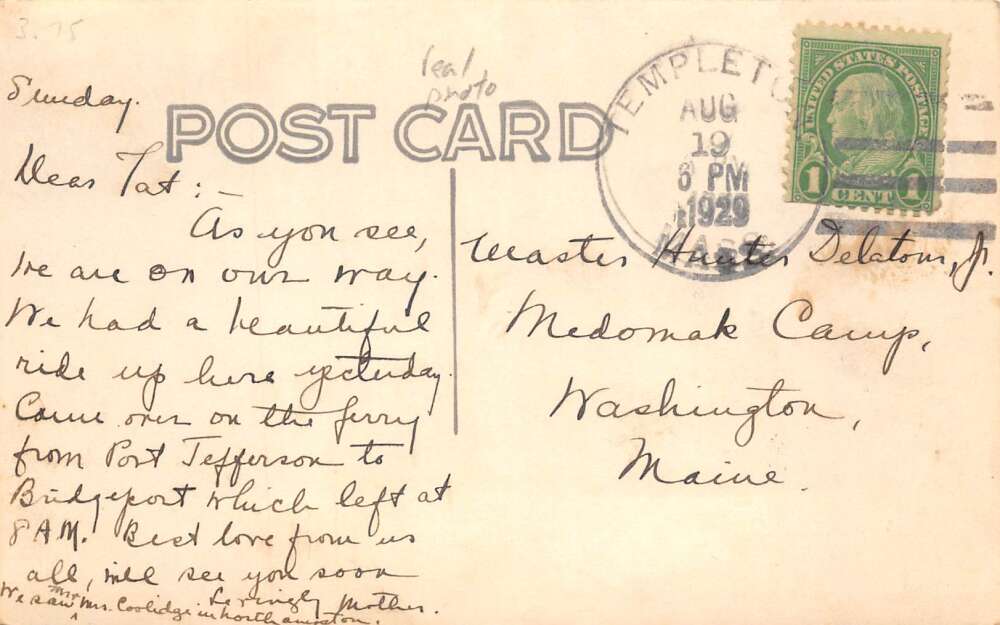 3.75
real
photo
POST CARD
TEMPLETON
AUG
19
6 PM
1929
MASS.
UNITED STATES POSTAGE
1 CENT 1
Sunday.
Dear Tat:—
As you see,
we are on our way.
We had a beautiful
ride up here yesterday.
Came over on the ferry
from Port Jefferson to
Bridgeport which left at
8 AM. Best love from us
all, will see you soon
Lovingly Mother.
We saw Mrs. Coolidge in Northampton.
Master Hunter Delatour, Jr.
Medomak Camp,
Washington,
Maine.